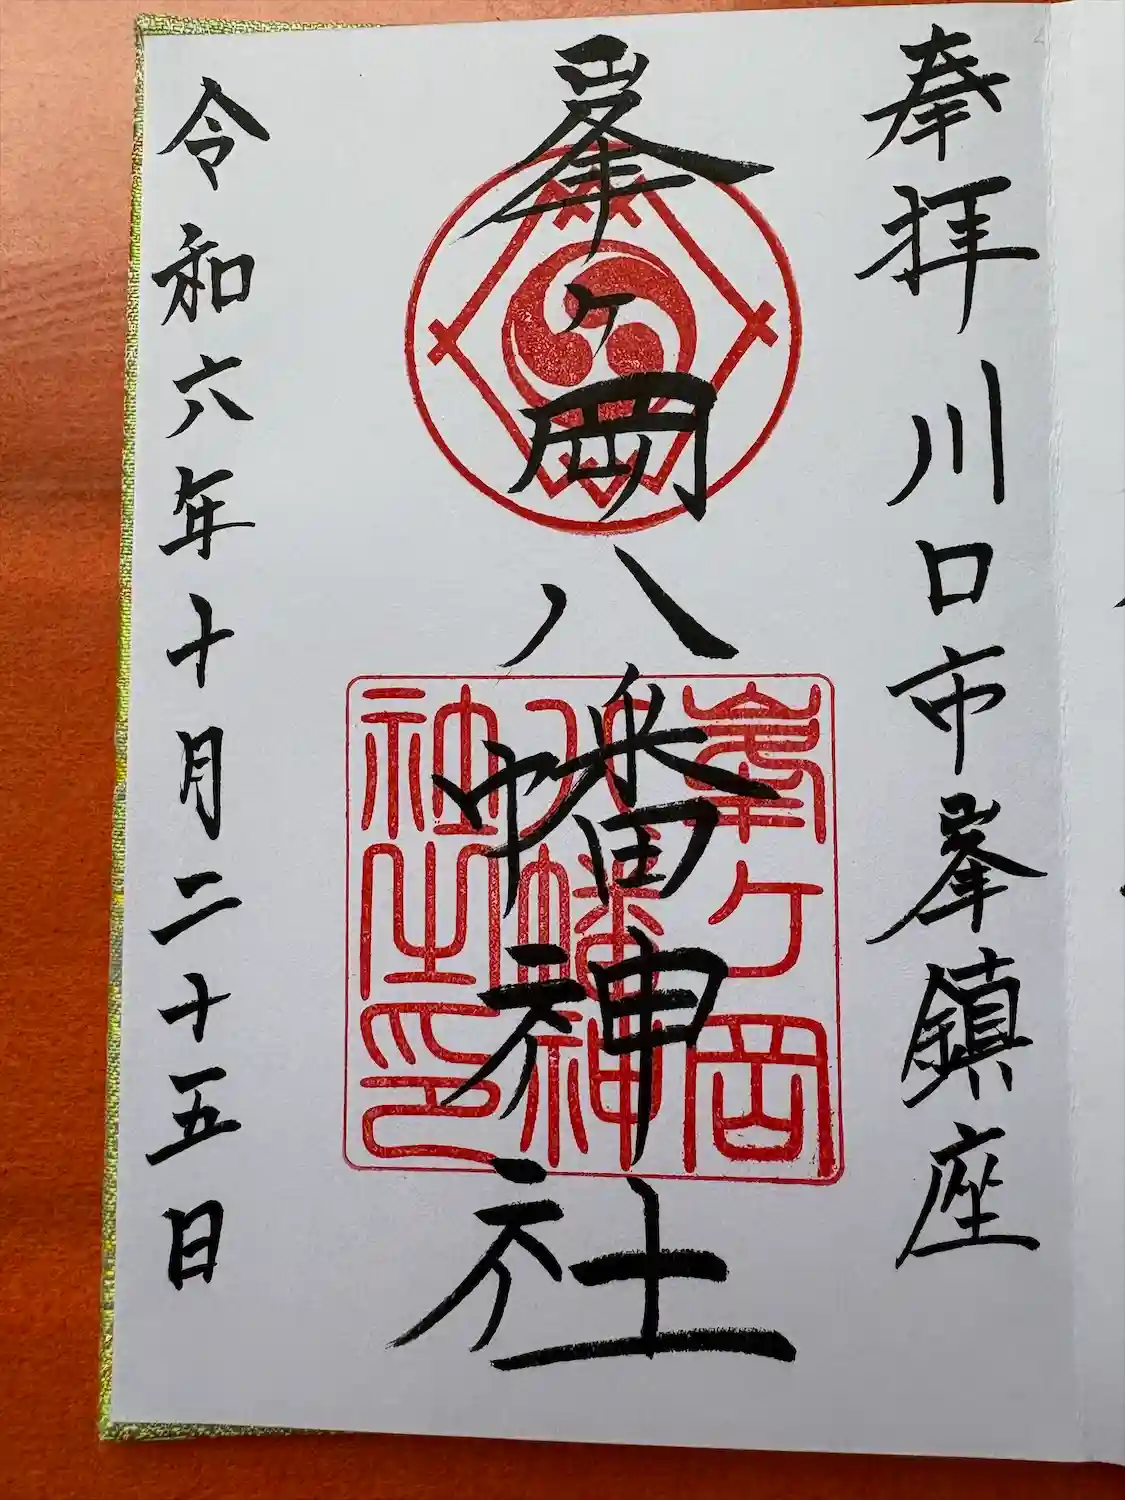 奉拝 川口市峯鎮座
峯ヶ岡八幡神社
峯ヶ岡
八幡神
社之印
令和六年十月二十五日